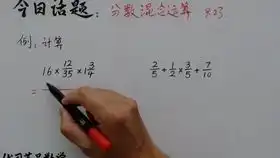 今日话题：分数混合运算 823
例：计算
16×12/35×1 3/4 2/5+1/2×3/5+7/10
=